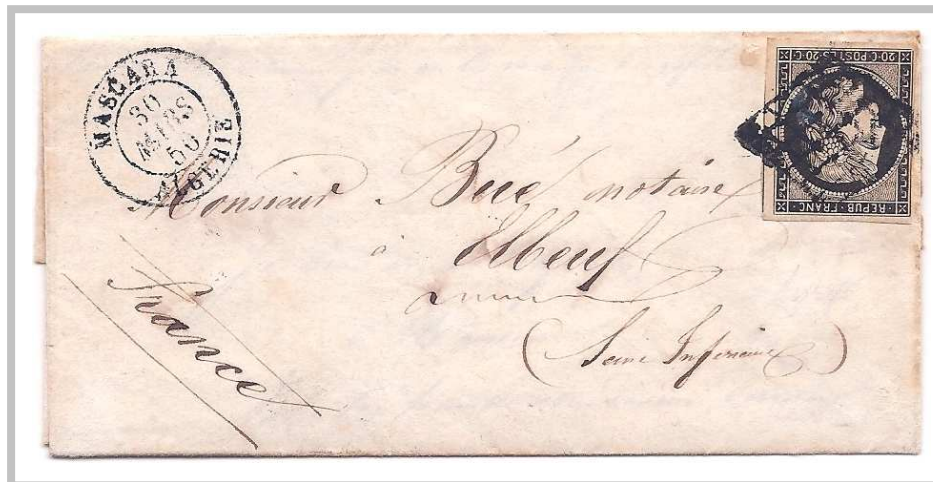 MASCARA
30
MARS
50
ALGERIE
20·C·POSTES·20·C
REPUB·FRANC
Monsieur Bué notaire
à Elbeuf
(Seine Inférieure)
France